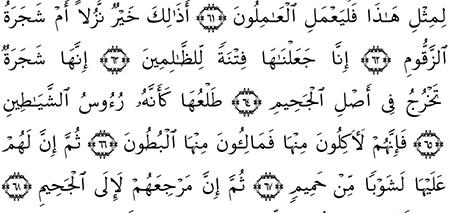 لِمِثْلِ هَٰذَا فَلْيَعْمَلِ الْعَٰمِلُونَ ﴿٦١﴾ أَذَٰلِكَ خَيْرٌ نُّزُلًا أَمْ شَجَرَةُ
الزَّقُّومِ ﴿٦٢﴾ إِنَّا جَعَلْنَٰهَا فِتْنَةً لِّلظَّٰلِمِينَ ﴿٦٣﴾ إِنَّهَا شَجَرَةٌ
تَخْرُجُ فِى أَصْلِ الْجَحِيمِ ﴿٦٤﴾ طَلْعُهَا كَأَنَّهُ رُءُوسُ الشَّيَاطِينِ
﴿٦٥﴾ فَإِنَّهُمْ لَأَكِلُونَ مِنْهَا فَمَالِئُونَ مِنْهَا الْبُطُونَ ﴿٦٦﴾ ثُمَّ إِنَّ لَهُمْ
عَلَيْهَا لَشَوْبًا مِّنْ حَمِيمٍ ﴿٦٧﴾ ثُمَّ إِنَّ مَرْجِعَهُمْ لَإِلَى الْجَحِيمِ ﴿٦٨﴾